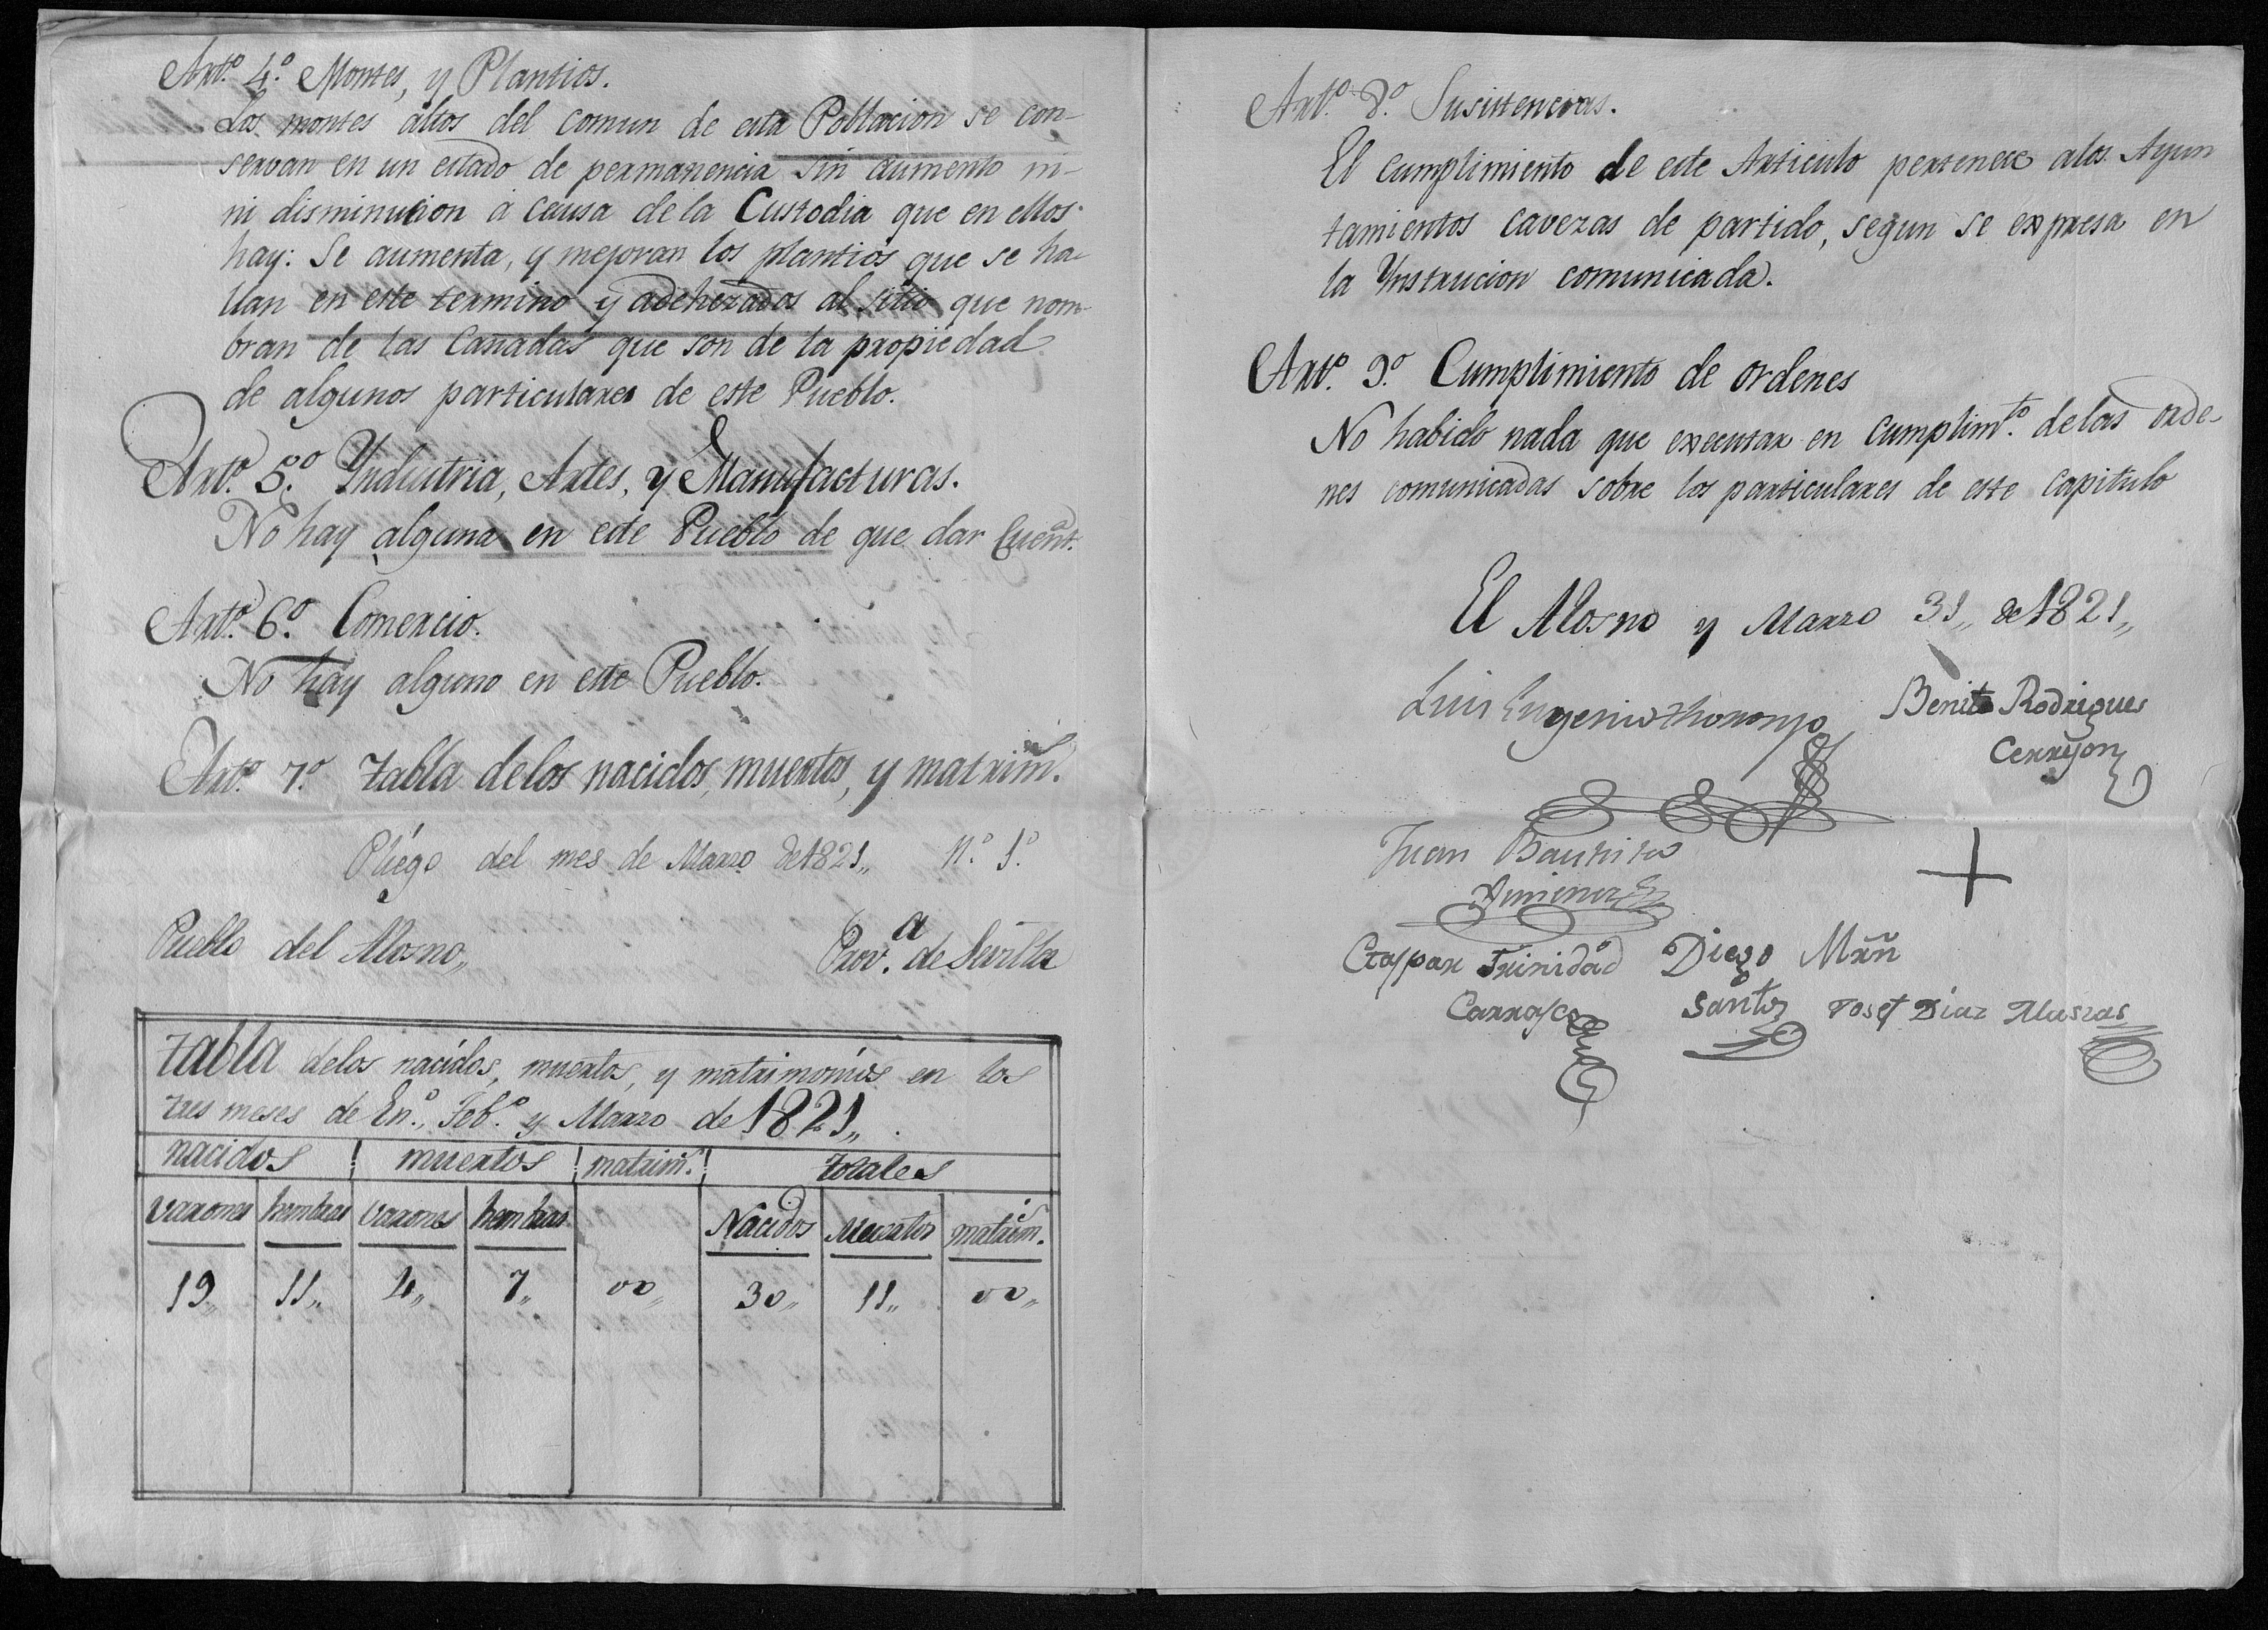 Art.º 4.º Montes, y Plantios.
Los montes altos del comun de esta Poblacion se con-
servan en un estado de permanencia sin aumento ni-
ni disminucion a causa de la Custodia que en ellos
hay: Se aumenta, y mejoran los plantios que se ha-
llan en este termino y adehezados al sitio que nom-
bran de las Cañadas que son de la propiedad
de algunos particulares de este Pueblo.
Art.º 5.º Yndustria, Artes, y Manufacturas.
No hay alguna en este Pueblo de que dar Cuent.
Art.º 6.º Comercio.
No hay alguno en este Pueblo.
Art.º 7.º tabla delos nacidos, muertos, y matrim.
Pliego del mes de Marzo de 1821,, N.º 1.º
Pueblo del Alosno,,
Prov.ª de Sevilla
tabla delos nacidos, muertos, y matrimonios en los
tres meses de En.º, Feb.º y Marzo de 1821,,
nacidos muertos matrim. totales
varones hembras varones hembras Nacidos Muertos matrim.
19,, 11,, 4,, 7,, 00,, 30,, 11,, 00,,
Art.º 8.º Susistencias.
El cumplimiento de este Articulo pertenece alos Ayun
tamientos cavezas de partido, segun se expresa en
la Ynstrucion comunicada.
Art.º 9.º Cumplimiento de ordenes
No habido nada que executar en cumplimt.º delas orde-
nes comunicadas sobre los particulares de este capitulo
El Alosno y Marzo 31,, de 1821,,
Luis Eugenio
Benito Rodrigues
Juan Bautista
Gaspar Trinidad Diego Mrñ
Carrasco Santos Josef Diaz